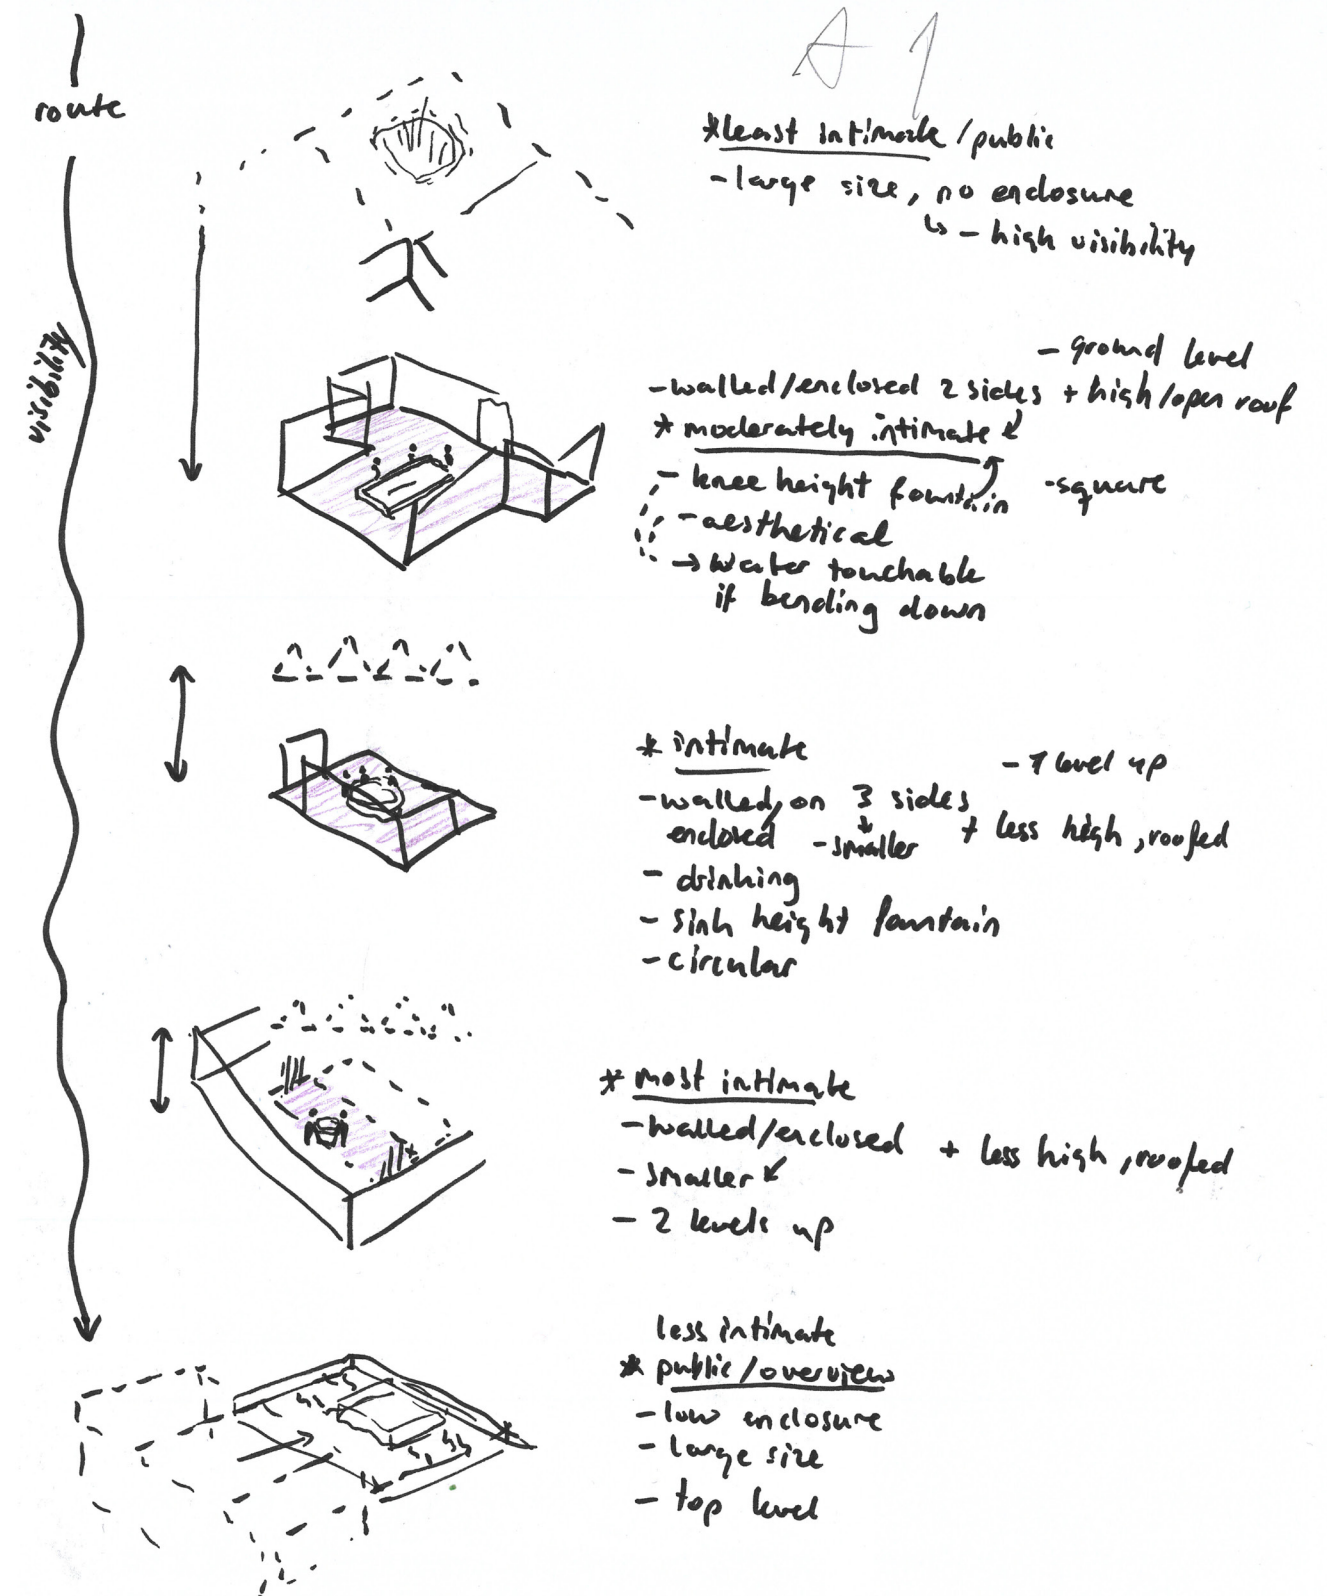 A 1
route
visibility
*least intimate/public
-large size, no enclosure
↳ - high visibility
- ground level
-walled/enclosed 2 sides + high/open roof
* moderately intimate
- knee height fountain
-square
-aesthetical
→ water touchable
if bending down
* intimate
- 1 level up
-walled/on 3 sides
enclosed -smaller + less high, roofed
- drinking
- sink height fountain
-circular
* most intimate
-walled/enclosed + less high, roofed
-smaller
- 2 levels up
less intimate
* public/overview
-low enclosure
- large size
- top level